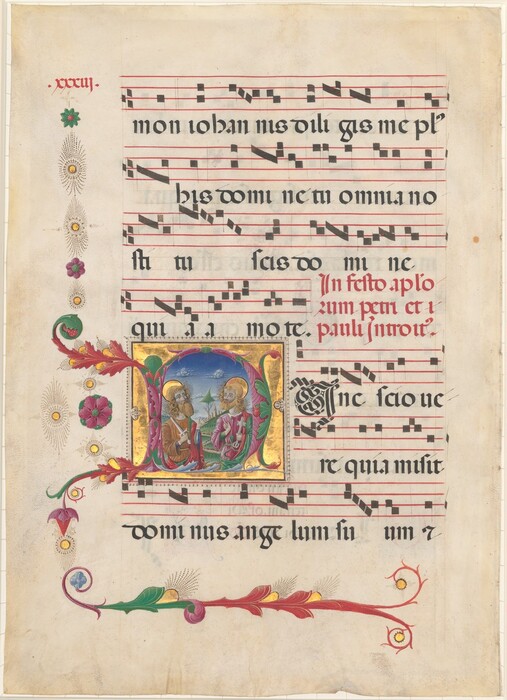 ·xxxiij·
mon iohan nis dili gis me plꝰ
his domi ne tu omnia no
sti tu scis do mi ne
qui a a mo te.
In festo aplo
rum petri et
pauli Introitꝰ.
N nc scio ue
re quia misit
domi nus ange lum su um ⁊